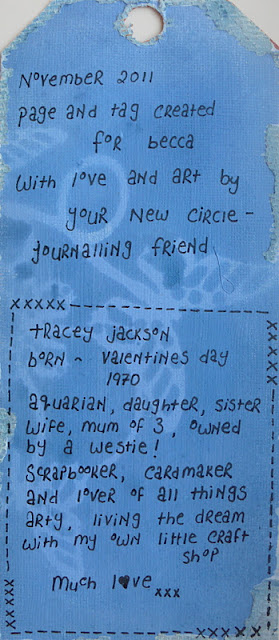 November 2011
page and tag created
for becca
with love and art by
your new circle-
journalling friend
xxxxx
tracey jackson
born ~ valentines day
1970
aquarian, daughter, sister
wife, mum of 3, owned
by a westie!
scrapbooker, cardmaker
and lover of all things
arty, living the dream
with my own little craft
shop
much l♥ve xxx